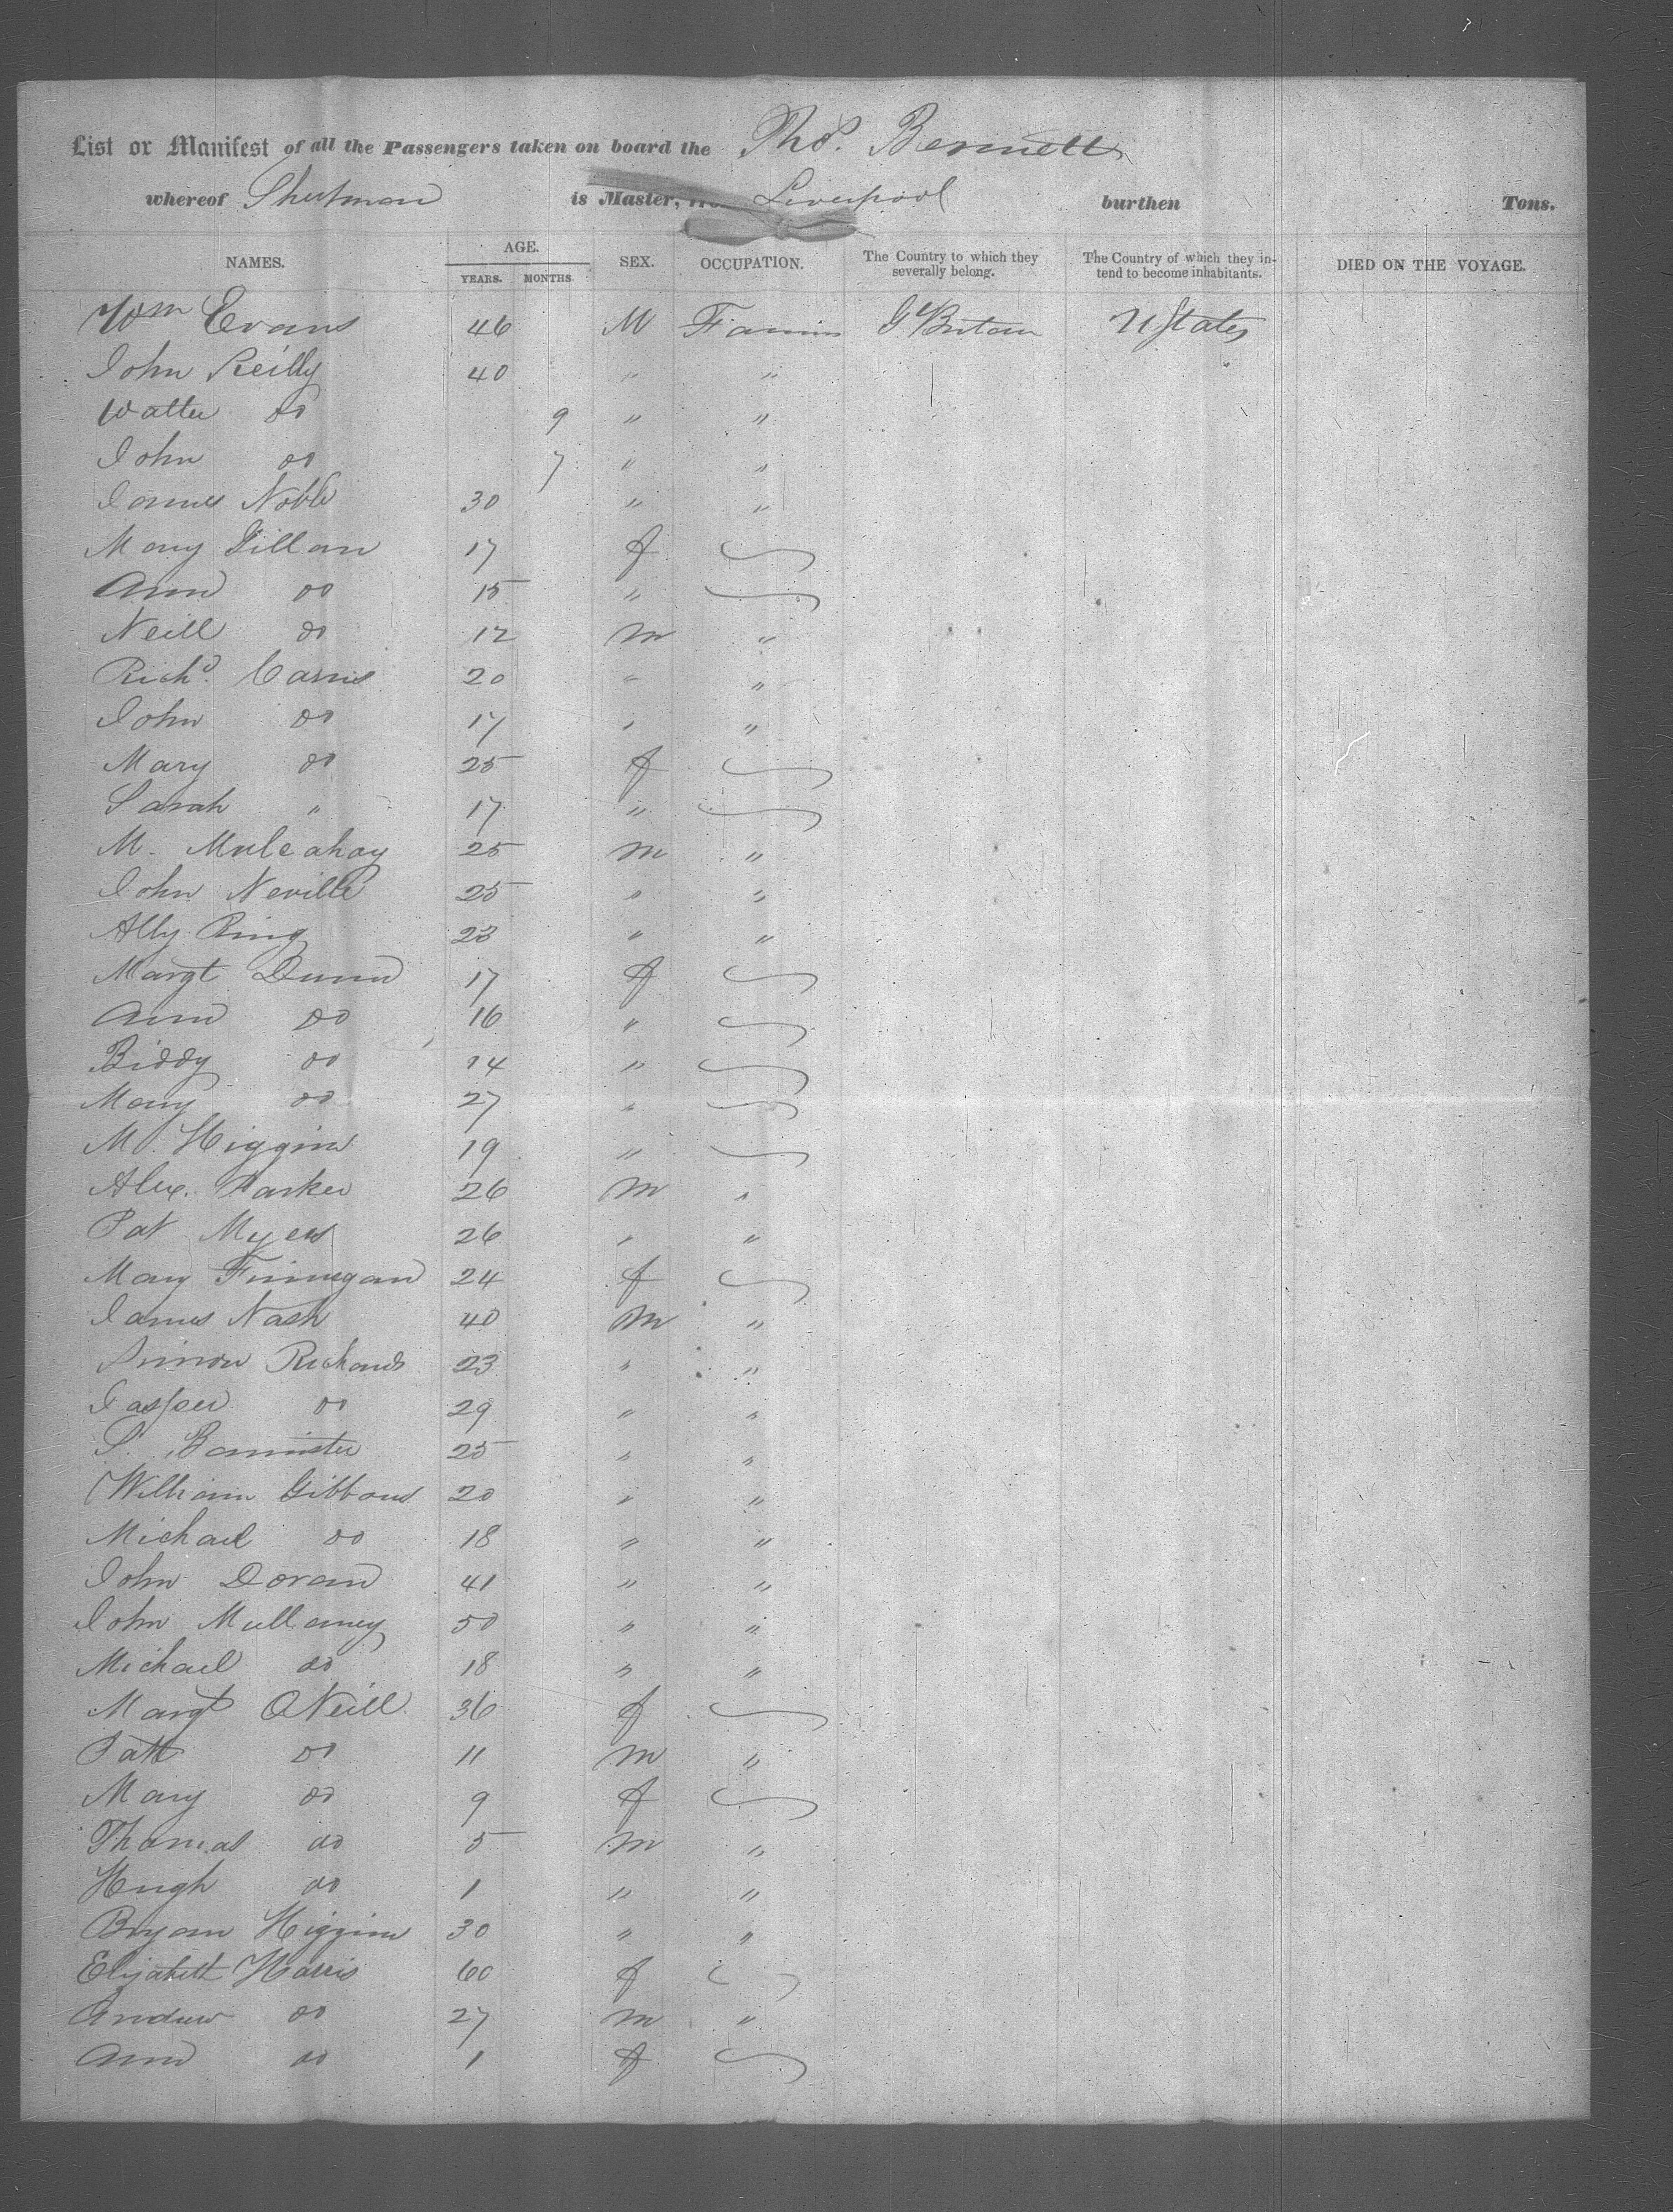 List or Manifest of all the Passengers taken on board the Thos. Bennett
whereof Shutman is Master, from Liverpool burthen Tons.
NAMES. AGE. YEARS. MONTHS. SEX. OCCUPATION. The Country to which they severally belong. The Country of which they intend to become inhabitants. DIED ON THE VOYAGE.
Wm Evans 46 M G Britain U States
John Reilly 40 " "
Walter do 9 " "
John do 7 " "
James Noble 30 " "
Mary Tillan 17 f
Ann do 15 "
Neill do 12 m "
Richd. 20 " "
John do 17 " "
Mary do 25 f
Sarah " 17 "
M. Mulcahay 25 m "
John Neville 25 " "
Ally Ring 23 " "
Margt Dunn 17 f
Ann do 16 "
Biddy do 14 "
Mary do 27 "
M. Higgins 19 "
Alex. Parker 26 m "
Pat Myers 26 " "
Mary Finnegan 24 f
James Nash 40 m "
Simon Richards 23 " "
Jasper do 29 " "
S. Bannister 25 " "
William Gibbons 20 " "
Michael do 18 " "
John Doran 41 " "
John Mullaney 50 " "
Michael do 18 " "
Margt ONeill 36 f
Patk do 11 m "
Mary do 9 f
Thomas do 5 m "
Hugh do 1 " "
Bryan Higgins 30 " "
Elizabeth Harris 60 f
Andrew do 27 m "
Ann do 1 f